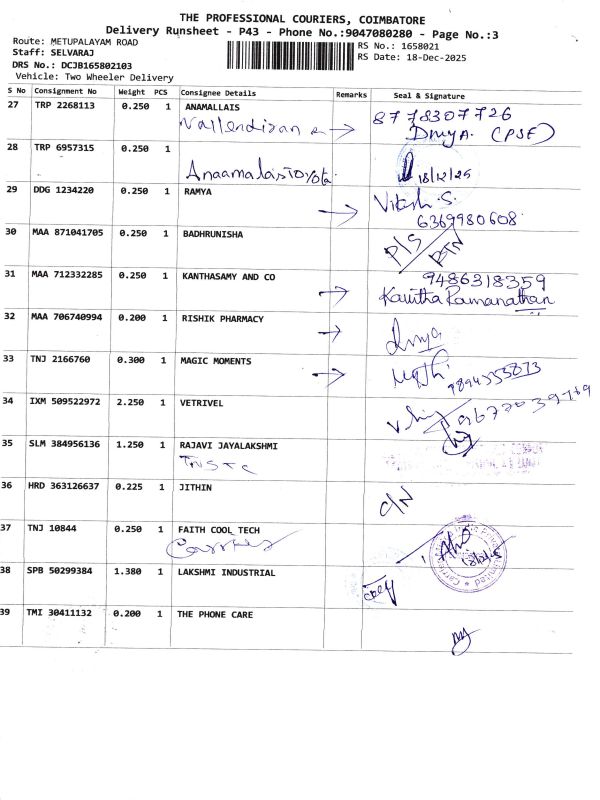 THE PROFESSIONAL COURIERS, COIMBATORE
Delivery Runsheet - P43 - Phone No.:9047080280 - Page No.:3
Route: METUPALAYAM ROAD
Staff: SELVARAJ
DRS No.: DCJB165802103
Vehicle: Two Wheeler Delivery
RS No.: 1658021
RS Date: 18-Dec-2025
S No Consignment No Weight PCS Consignee Details Remarks Seal & Signature
27 TRP 2268113 0.250 1 ANAMALLAIS 8778307726
Divya. (PSF)
28 TRP 6957315 0.250 1
Anaamalais Toyota. 18/12/25
29 DDG 1234220 0.250 1 RAMYA
6369980608
30 MAA 871041705 0.250 1 BADHRUNISHA P/S RTN
31 MAA 712332285 0.250 1 KANTHASAMY AND CO 9486318359
Kavitha Ramanathan
32 MAA 706740994 0.200 1 RISHIK PHARMACY
33 TNJ 2166760 0.300 1 MAGIC MOMENTS
34 IXM 509522972 2.250 1 VETRIVEL
35 SLM 384956136 1.250 1 RAJAVI JAYALAKSHMI
TNSTC
36 HRD 363126637 0.225 1 JITHIN
37 TNJ 10844 0.250 1 FAITH COOL TECH
38 SPB 50299384 1.380 1 LAKSHMI INDUSTRIAL
39 TMI 30411132 0.200 1 THE PHONE CARE